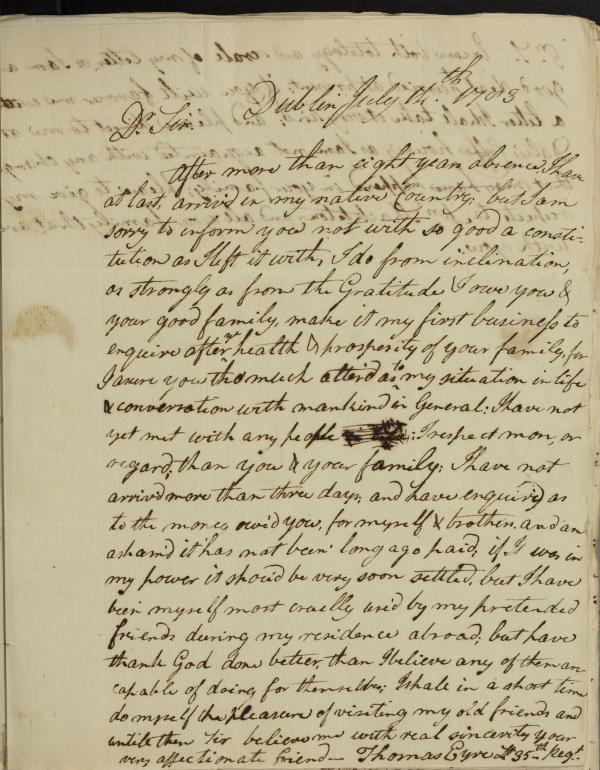 Dublin July 14th. 1763
Dr. Sir.
After more than eight years absence, I have
at last, arriv'd in my native Country; but I am
sorry to inform you not with so good a consti-
tution as I left it with, I do from inclination,
as strongly as from the Gratitude I owe you &
your good family, make it my first business to
enquire after ye health & prosperity of your family, for
I asure you tho much alterd as to my situation in life
& conversation with mankind in General: I have not
yet met with any people : I respect mon, or
regard, than you & your family; I have not
arriv'd more than three days; and have enquir'd as
to the money owid you, for myself & brother. and am
asham'd it has not been long ago paid; if It was in
my power it shou'd be very soon settled, but I have
been myself most cruelly us'd by my pretended
friends during my residence abroad; but have
thank God done better, than I believe any of them are
capable of doing for themselves; I shall in a short time
do myself the pleasure of visiting my old friends and
untill then Sir believe me with real sincerity your
very affectionate friend— Thomas Eyre Lt 35th Regt.